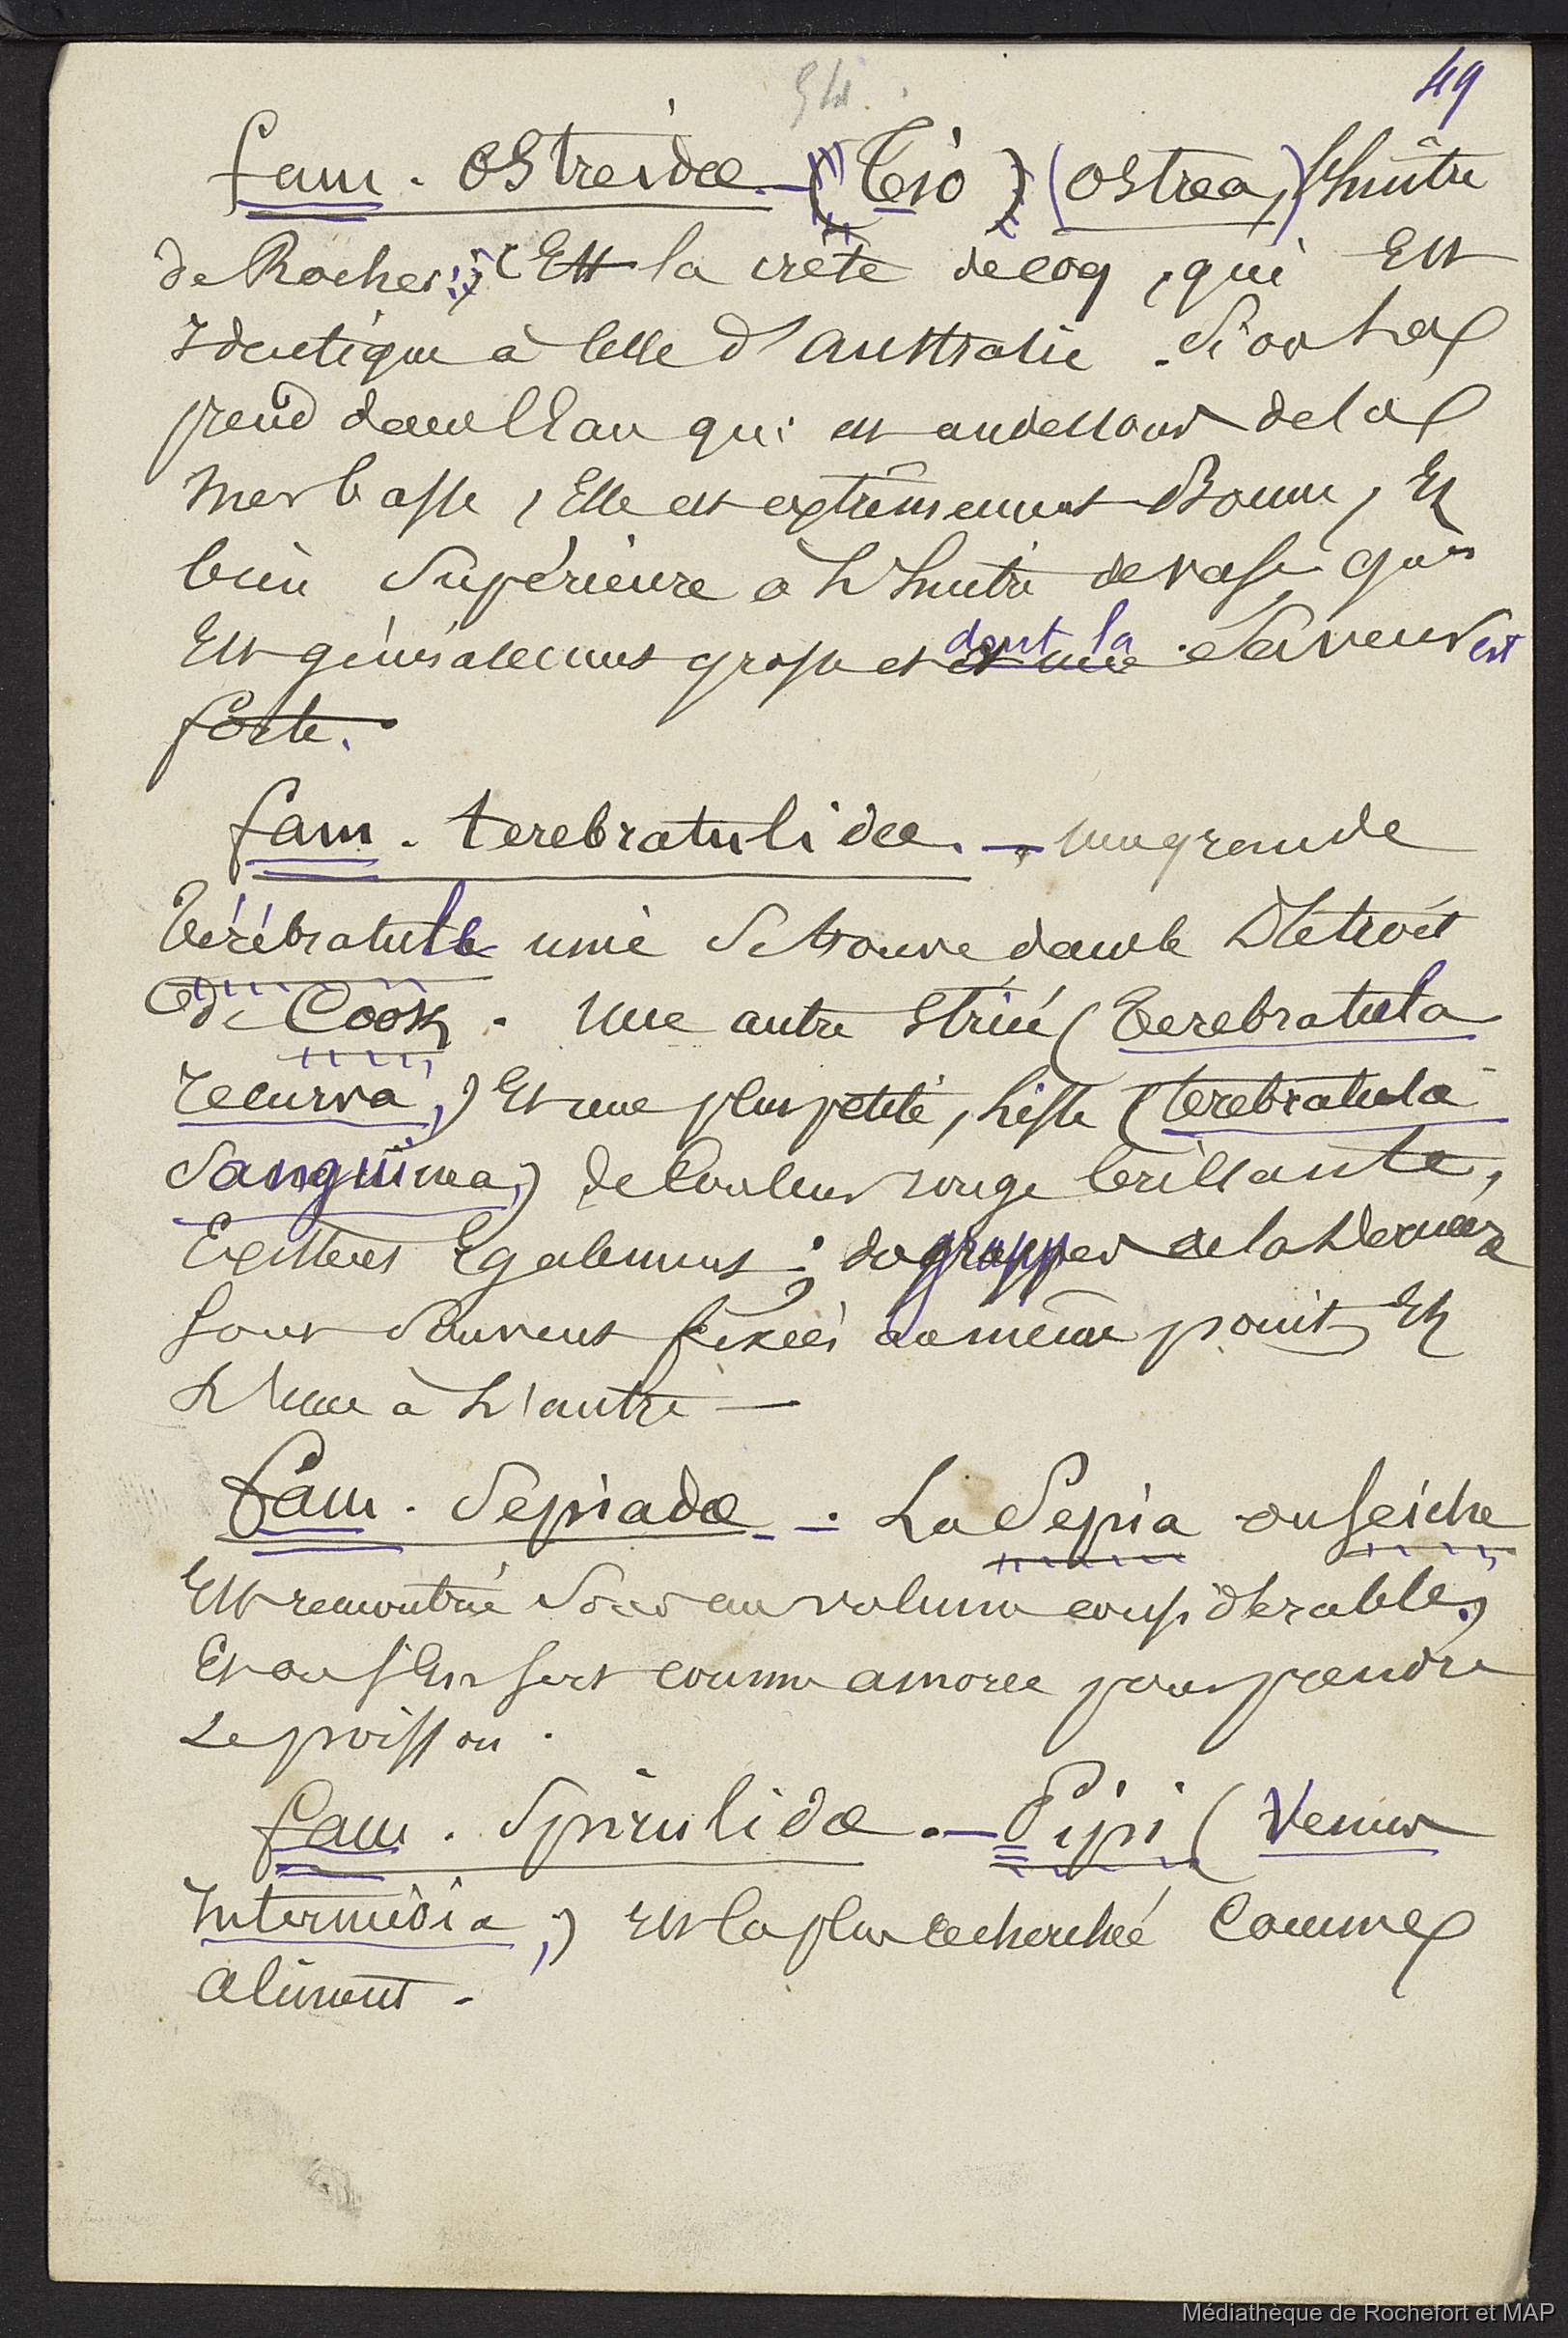 54.
49
fam. Ostreidæ. — (Teio) (Ostrea,) l'huître
de Roches, Est la crête de coq, qui Est
Identique à celle d'Australie. Si on la
prend dans l'Eau qui est au dessous de la
Mer basse, Elle est extrêmement Bonne, Et
bien Supérieure à L'huitre de vase, qui
Est généralement grosse et dont la Saveur est
forte.
fam. terebratulidæ. — une grande
Térébratule unie Se trouve dans le Détroit
de Cook. Une autre Striée (Terebratula
recurva,) Et une plus petite, Lisse (terebratula
Sanguinea,) de Couleur rouge brillante,
Existent Egalement; des groupes de la Dernière
Sont Souvent fixées au même point, Et
L'une à L'autre —
fam. Sepiadæ. — . La Sepia ou Seiche
Est rencontrée Sous un volume considérable,
Et on S'En Sert comme amorce pour prendre
Le poisson.
fam. Spirulidæ. — Pipi (Venus
Intermédia,) Est la plus recherchée Comme
aliment.
Médiathèque de Rochefort et MAP